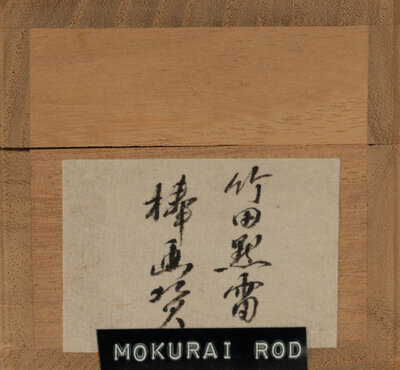 竹田黙雷
棒画賛
MOKURAI ROD